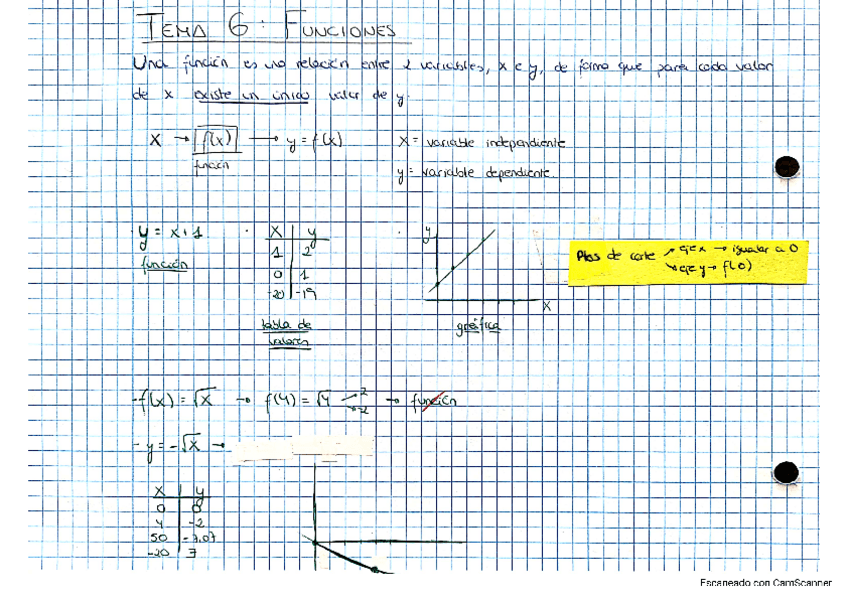 TEMA 6: FUNCIONES
Una función es una relación entre 2 variables, x e y, de forma que para cada valor
de x existe un único valor de y.
X → f(x) → y = f(x) X = variable independiente
función y = variable dependiente
y = x+1
función
X y
1 2
0 1
-20 -19
tabla de
valores
y
X
gráfica
Ptos de corte ↗ eje x → igualar a 0
↘ eje y → f(0)
- f(x) = √x → f(4) = √4 ↗ 2 ↘ -2 → función
- y = -√x →
X y
0 0
4 -2
50 -7,07
-20 7
Escaneado con CamScanner